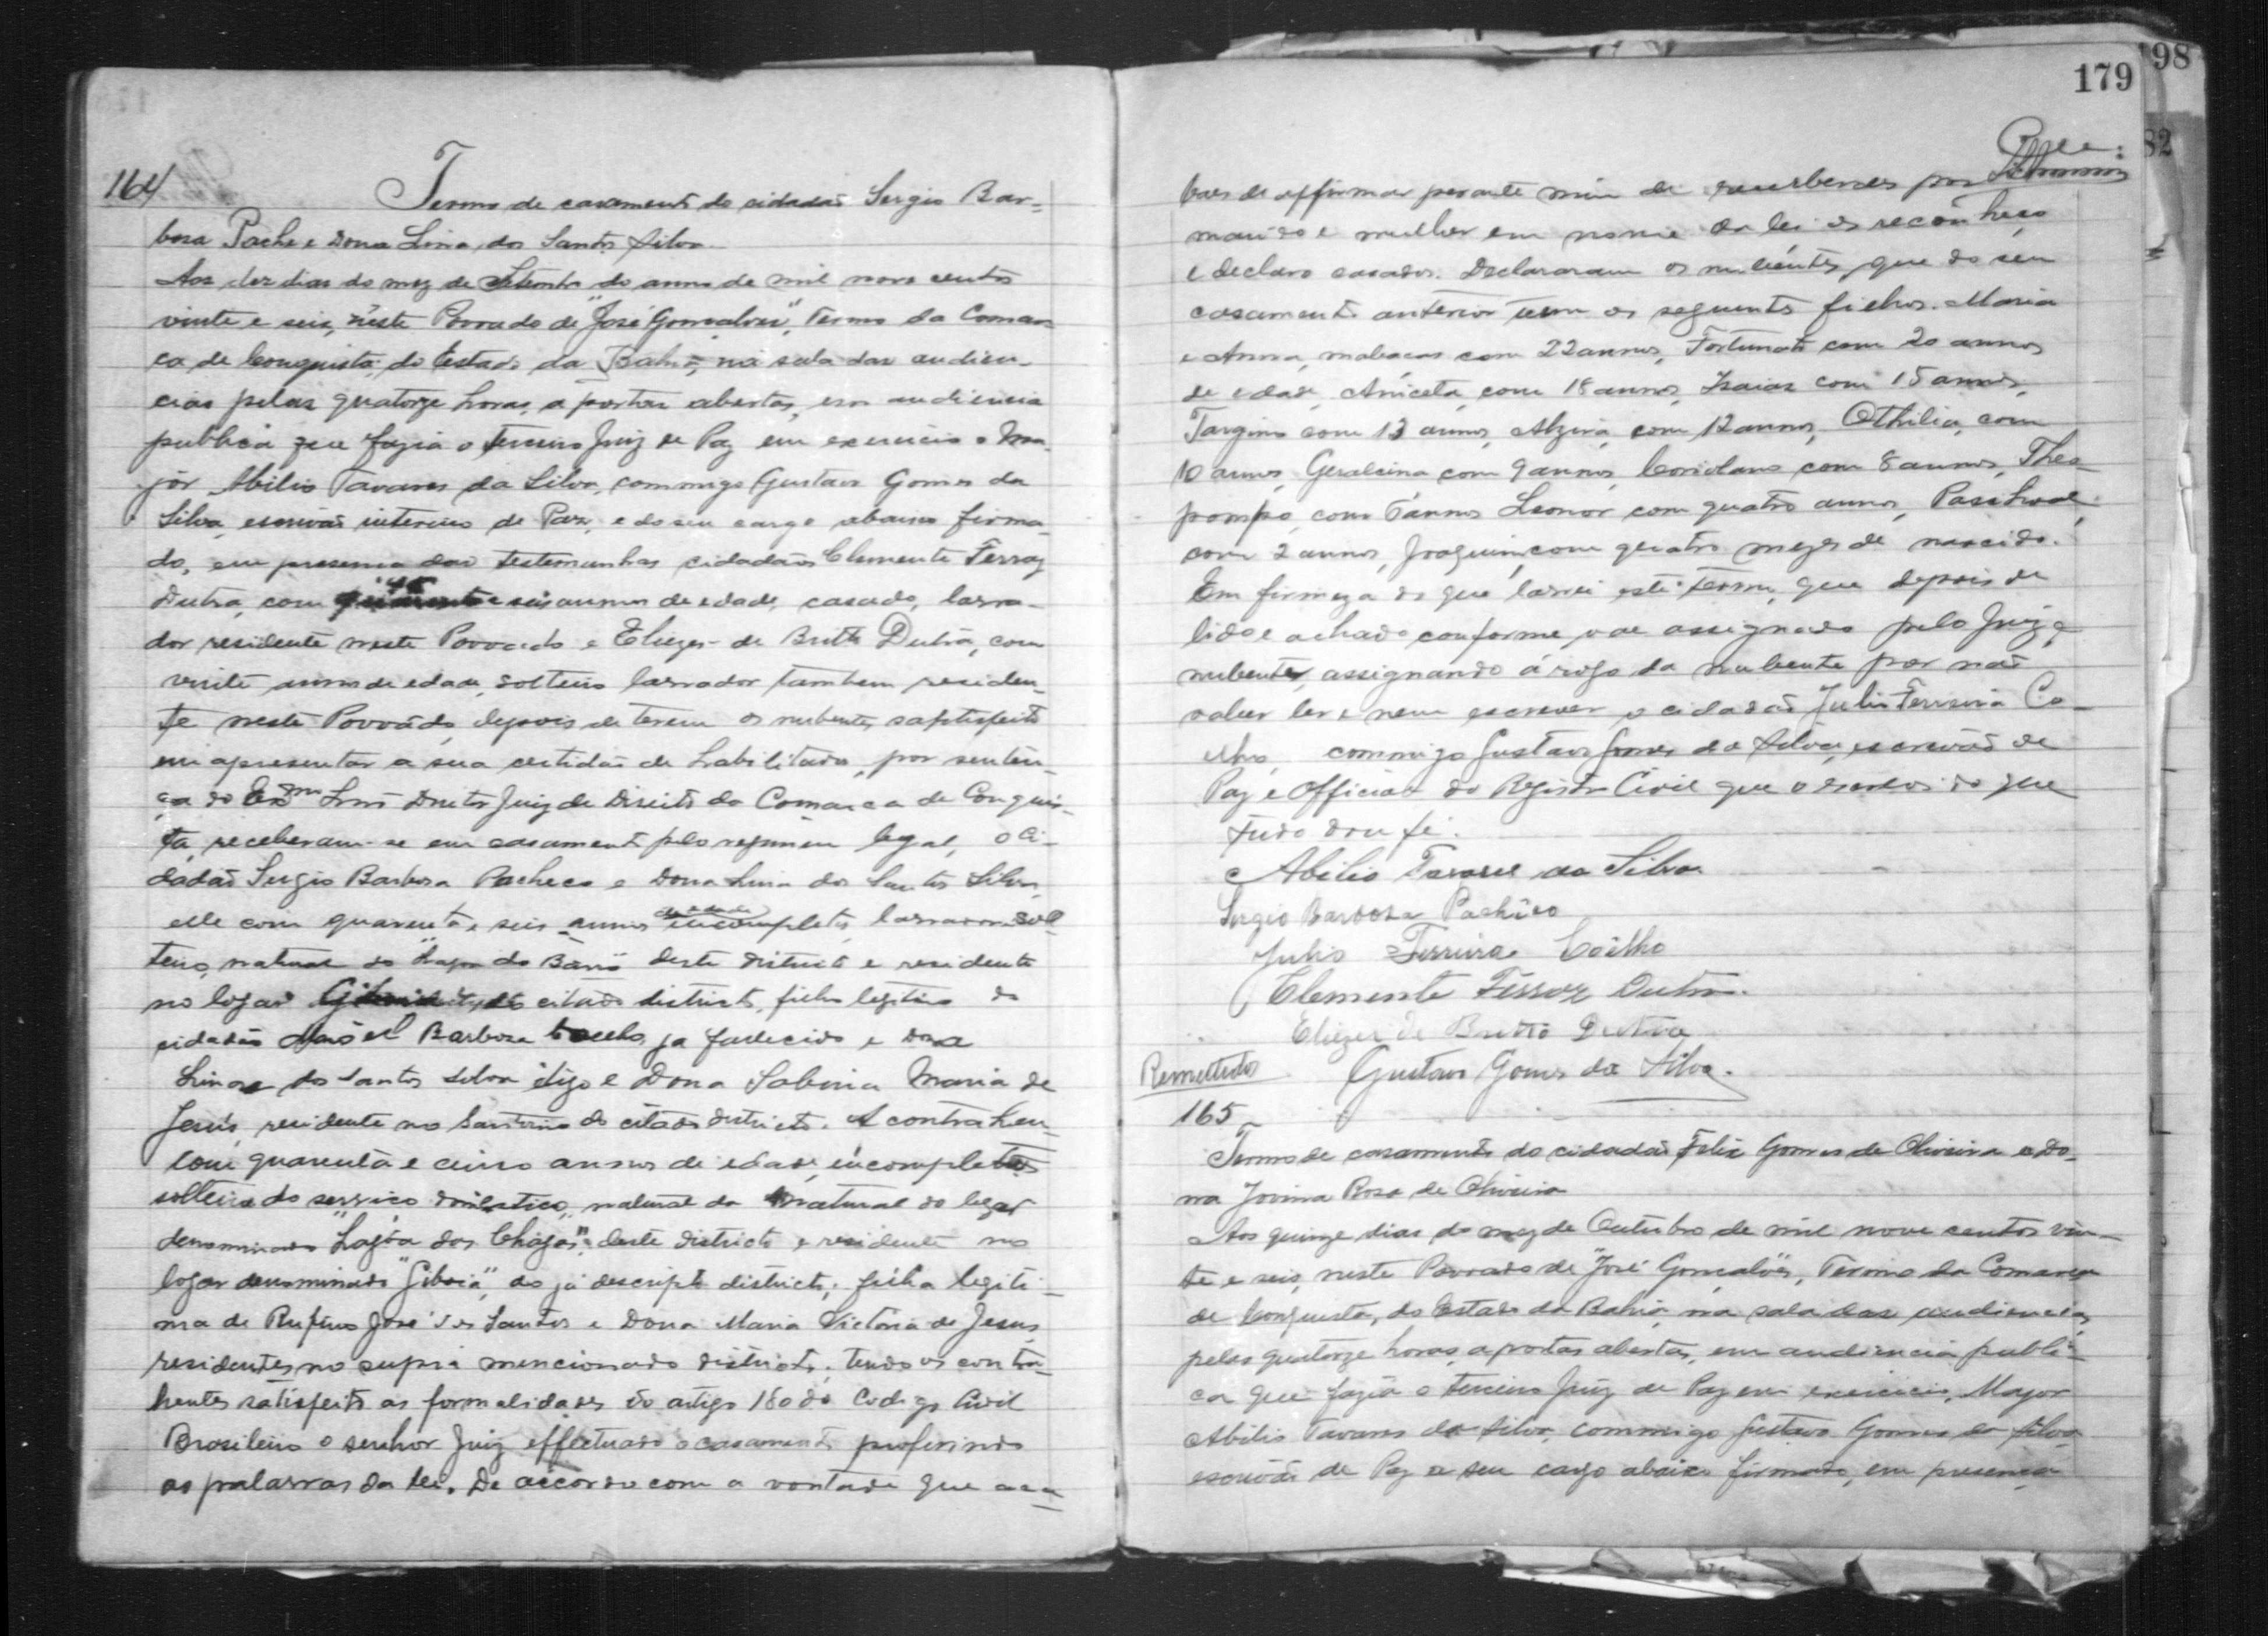 164
Termo de casamento do cidadão Sergio Bar=
bosa Pache e Dona Lina dos Santos Silva
Aos dez dias do mez de Setembro do anno de mil nove centos
vinte e seis, neste Povoado de "José Gonçalves", Termo da Comar=
ca de Conquista, do Estado da Bahia, na sala das audien-
cias pelas quatorze horas, a portas abertas, em audiencia
publica que fazia o terceiro Juiz de Paz em exercicio o Ma-
jor Abilio Tavares da Silva, commigo Gustavo Gomes da
Silva, escrivão interino de Paz, e do seu cargo abaixo firma-
do, em presença das testemunhas cidadãos Clemente Ferraz
Dutra, com 46 annos de edade, casado, lavra-
dor residente neste Povoado e Eliezer de Britto Dutra, com
vinte annos de edade, solteiro lavrador tambem residen-
te neste Povoado, depois de terem os nubentes saptisfeito
em apresentar a sua certidão de habilitados, por senten-
ça do Exmo Snr Doutor Juiz de Direito da Comarca de Conquis-
ta, receberam-se em casamento pelo regimen legal, o ci-
dadão Sergio Barbosa Pacheco e Dona Lina dos Santos Silva,
elle com quarenta e seis annos de edade incompletos, lavrador sol
teiro, natural do "Lagoa do Barro" deste districto e residente
no logar do citado districto, filho legitimo do
cidadão Manoel Barbosa Coelho, ja fallecido e Dona
Lina dos Santos Silva digo e Dona Sabina Maria de
Jesus, residente no do citado districto. A contrahen-
com quarenta e cinco annos de edade, incompletos
solteira do serviço domestico, natural da natural do logar
denominado "Lagôa das Chagas", deste districto e residente no
logar denominado "Giboia", do já descripto districto; filha legiti-
ma de Rufino José dos Santos e Dona Maria Victoria de Jesus,
residentes no supra mencionado districto, tendo os contra-
hentes satisfeito as formalidades do artigo 180 do Codigo Civil
Brasileiro o senhor Juiz effectuado o casamento proferindo
as palavras da lei. De accordo com a vontade que aca-
179
198
82
baes de affirmar perante mim de receberdes por
marido e mulher em nome da lei os reconheço
e declaro casados. Declararam os nubentes, que do seu
casamento anterior teem os seguintes filhos. Maria
e Anna, mabaças com 22 annos, Fortunato com 20 annos
de edade, Aniceta, com 18 annos, Isaias com 15 annos,
Targino com 13 annos, Alzira, com 12 annos, Othilia, com
10 annos, Geralcina com 9 annos, Coriolano com 8 annos, Theo-
pompo, com annos Leonor com quatro annos, Paschoal,
com 2 annos, Joaquim, com quatro mezes de nascido.
Em firmeza do que lavrei este termo, que depois de
lido e achado conforme, vae assignado pelo Juiz, e
nubentes, assignando á rogo da nubente por não
saber ler e nem escrever, o cidadão Julio Ferreira Co-
elho, commigo Gustavo Gomes da Silva, escrivão de
Paz e Official do Registro Civil que o escrevi do que
tudo dou fé.
Abilio Tavares da Silva
Sergio Barbosa Pachêco
Julio Ferreira Coêlho
Clemente Ferraz Dutra.
Eliezer de Britto Dutra
Remettido Gustavo Gomes da Silva.
165
Termo de casamento do cidadão Felix Gomes de Oliveira e Do-
na Jovina Rosa de Oliveira
Aos quinze dias do mez de Outubro de mil nove centos vin-
te e seis, neste Povoado de "José Gonçalves", Termo da Comarca
de Conquista, do Estado da Bahia, na sala das audiencias
pelas quatorze horas, a portas abertas, em audiencia publi-
ca que fazia o terceiro Juiz de Paz em exercicio, Major
Abilio Tavares da Silva, commigo Gustavo Gomes da Silva
escrivão de Paz e seu cargo abaixo firmado, em presença